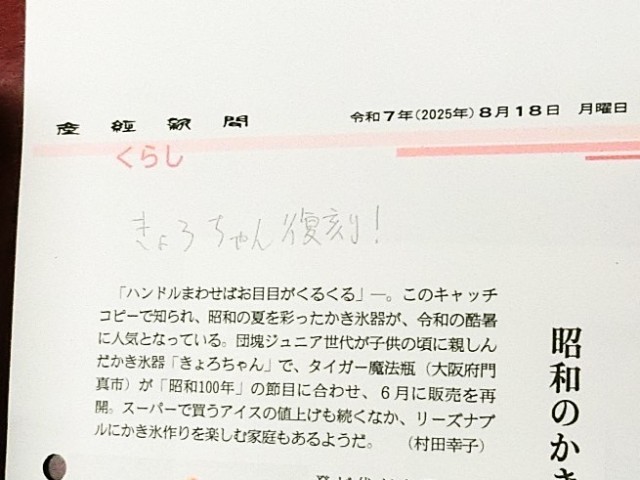 産經新聞
令和7年(2025年)8月18日 月曜日
くらし
きょろちゃん復刻!
「ハンドルまわせばお目目がくるくる」―。このキャッチ
コピーで知られ、昭和の夏を彩ったかき氷器が、令和の酷暑
に人気となっている。団塊ジュニア世代が子供の頃に親しん
だかき氷器「きょろちゃん」で、タイガー魔法瓶(大阪府門
真市)が「昭和100年」の節目に合わせ、6月に販売を再
開。スーパーで買うアイスの値上げも続くなか、リーズナブ
ルにかき氷作りを楽しむ家庭もあるようだ。 (村田幸子)
昭和のかき